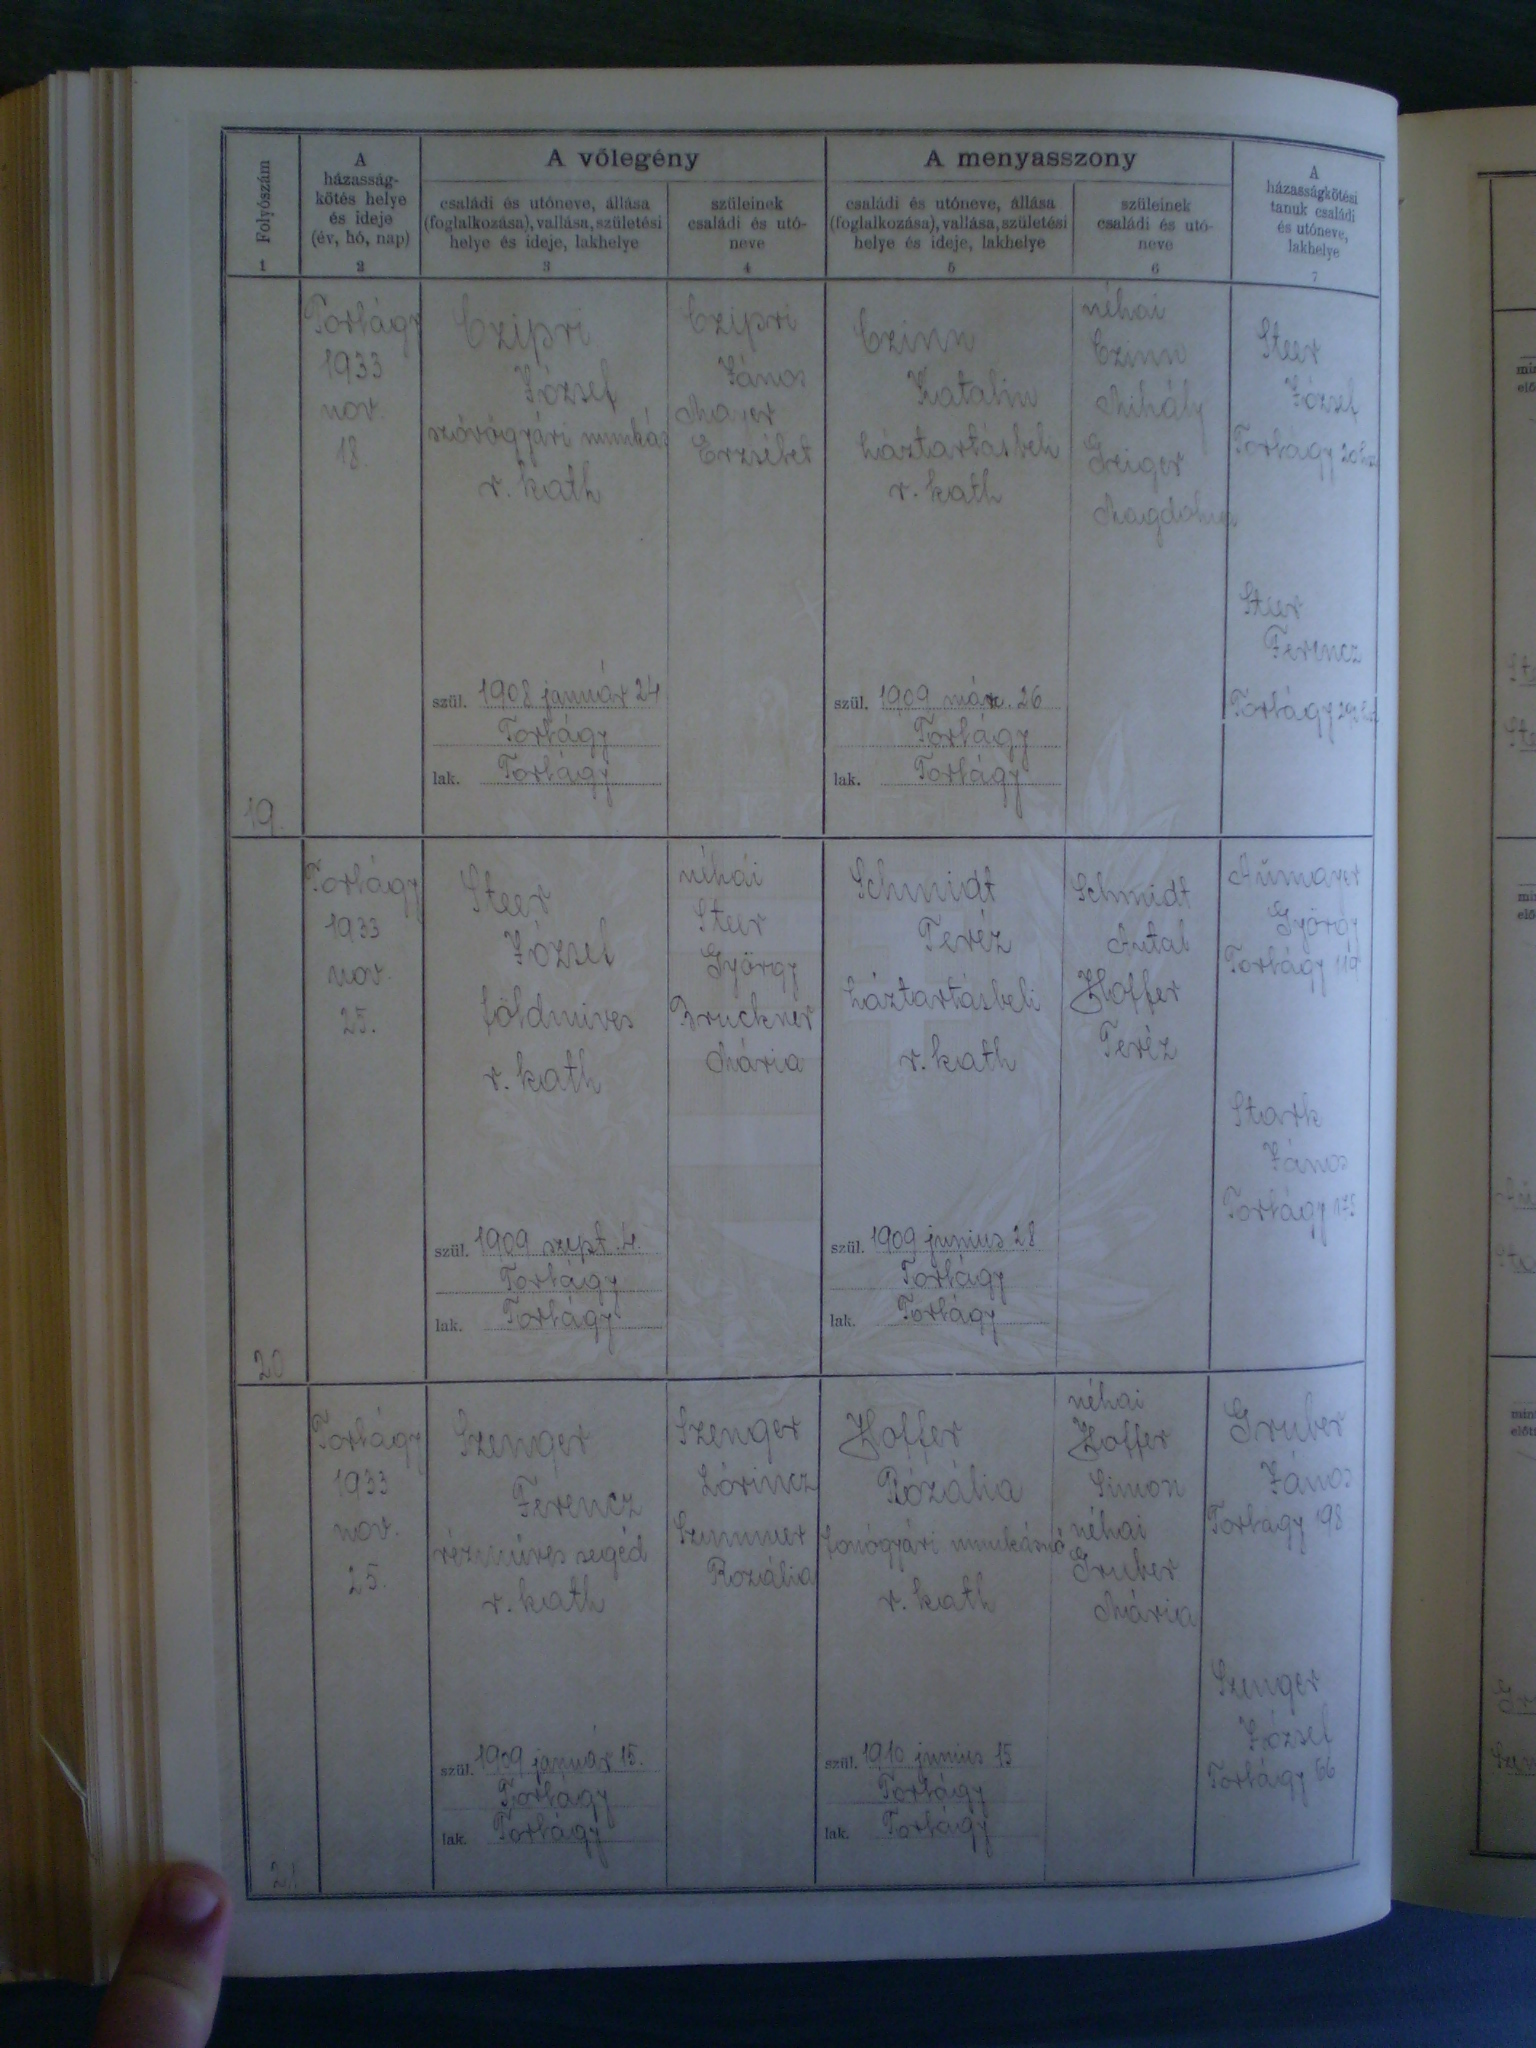 Folyószám
A
házasság-
kötés helye
és ideje
(év, hó, nap)
A vőlegény
családi és utóneve, állása
(foglalkozása), vallása, születési
helye és ideje, lakhelye
szüleinek
családi és utó-
neve
A menyasszony
családi és utóneve, állása
(foglalkozása), vallása, születési
helye és ideje, lakhelye
szüleinek
családi és utó-
neve
A
házasságkötési
tanuk családi
és utóneve,
lakhelye
1
2
3
4
5
6
7
19.
Torbágy
1933
nov.
18.
Czipri
József
szóvógyári munkás
r. kath
szül. 1908 január 24
Torbágy
lak. Torbágy
Czipri
János
Mayer
Erzsébet
Czinn
Katalin
háztartásbeli
r. kath
szül. 1909 márc. 26
Torbágy
lak. Torbágy
néhai
Czinn
Mihály
Geiger
Magdolna
Steer
József
Torbágy
Steer
Ferencz
Torbágy
20
Torbágy
1933
nov.
25.
Steer
József
földmives
r. kath
szül. 1909 szept. 4.
Torbágy
lak. Torbágy
néhai
Steer
György
Bruckner
Mária
Schmidt
Teréz
háztartásbeli
r. kath
szül. 1909 junius 28
Torbágy
lak. Torbágy
Schmidt
Antal
Hoffer
Teréz
Aumayer
György
Torbágy 119
Stark
János
Torbágy 175
21
Torbágy
1933
nov.
25.
Szenger
Ferencz
rézmüves segéd
r. kath
szül. 1909 január 15.
Torbágy
lak. Torbágy
Szenger
Lőrincz
Szimmer
Rozália
Hoffer
Rózália
fonógyári munkásnő
r. kath
szül. 1910 junius 15
Torbágy
lak. Torbágy
néhai
Hoffer
Simon
néhai
Gruber
Mária
Gruber
János
Torbágy 198
Szenger
József
Torbágy 66